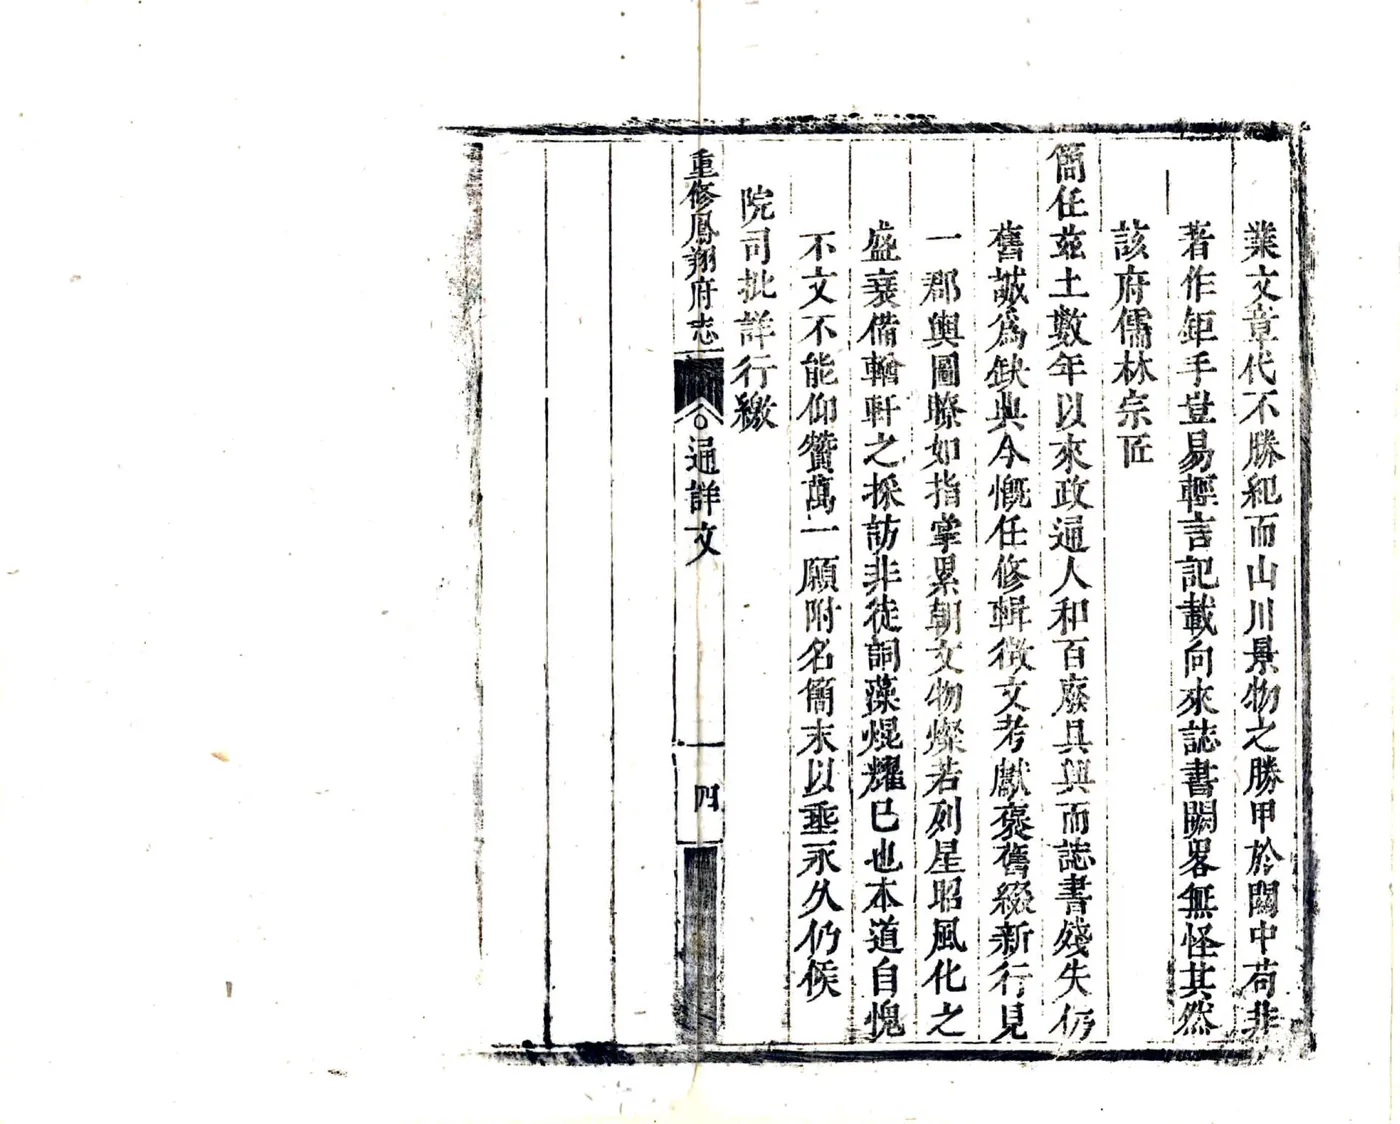 業文章代不勝紀而山川景物之勝甲於關中苟非
著作鉅手豈易輕言記載向來誌書闕畧無怪其然
該府儒林宗匠
簡任茲土數年以來政通人和百廢具興而誌書殘失仍
舊誠爲缺典今慨任修輯徵文考獻褒舊綴新行見
一郡輿圖瞭如指掌累朝文物燦若列星昭風化之
盛衰備輶軒之採訪非徒詞藻焜耀已也本道自愧
不文不能仰贊萬一願附名簡末以垂永久仍候
院司批詳行繳
重修鳳翔府志
通詳文
四